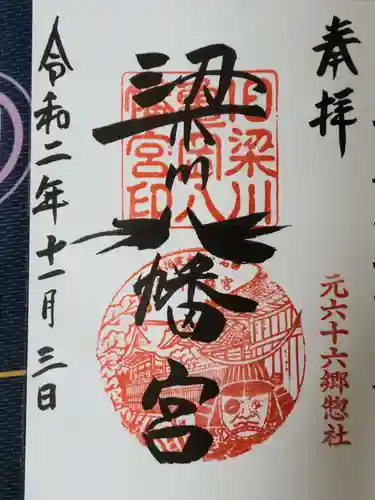 奉拝
元六十六郷惣社
梁川八幡宮
旧梁川
亀岡八
幡宮印
令和二年十一月三日